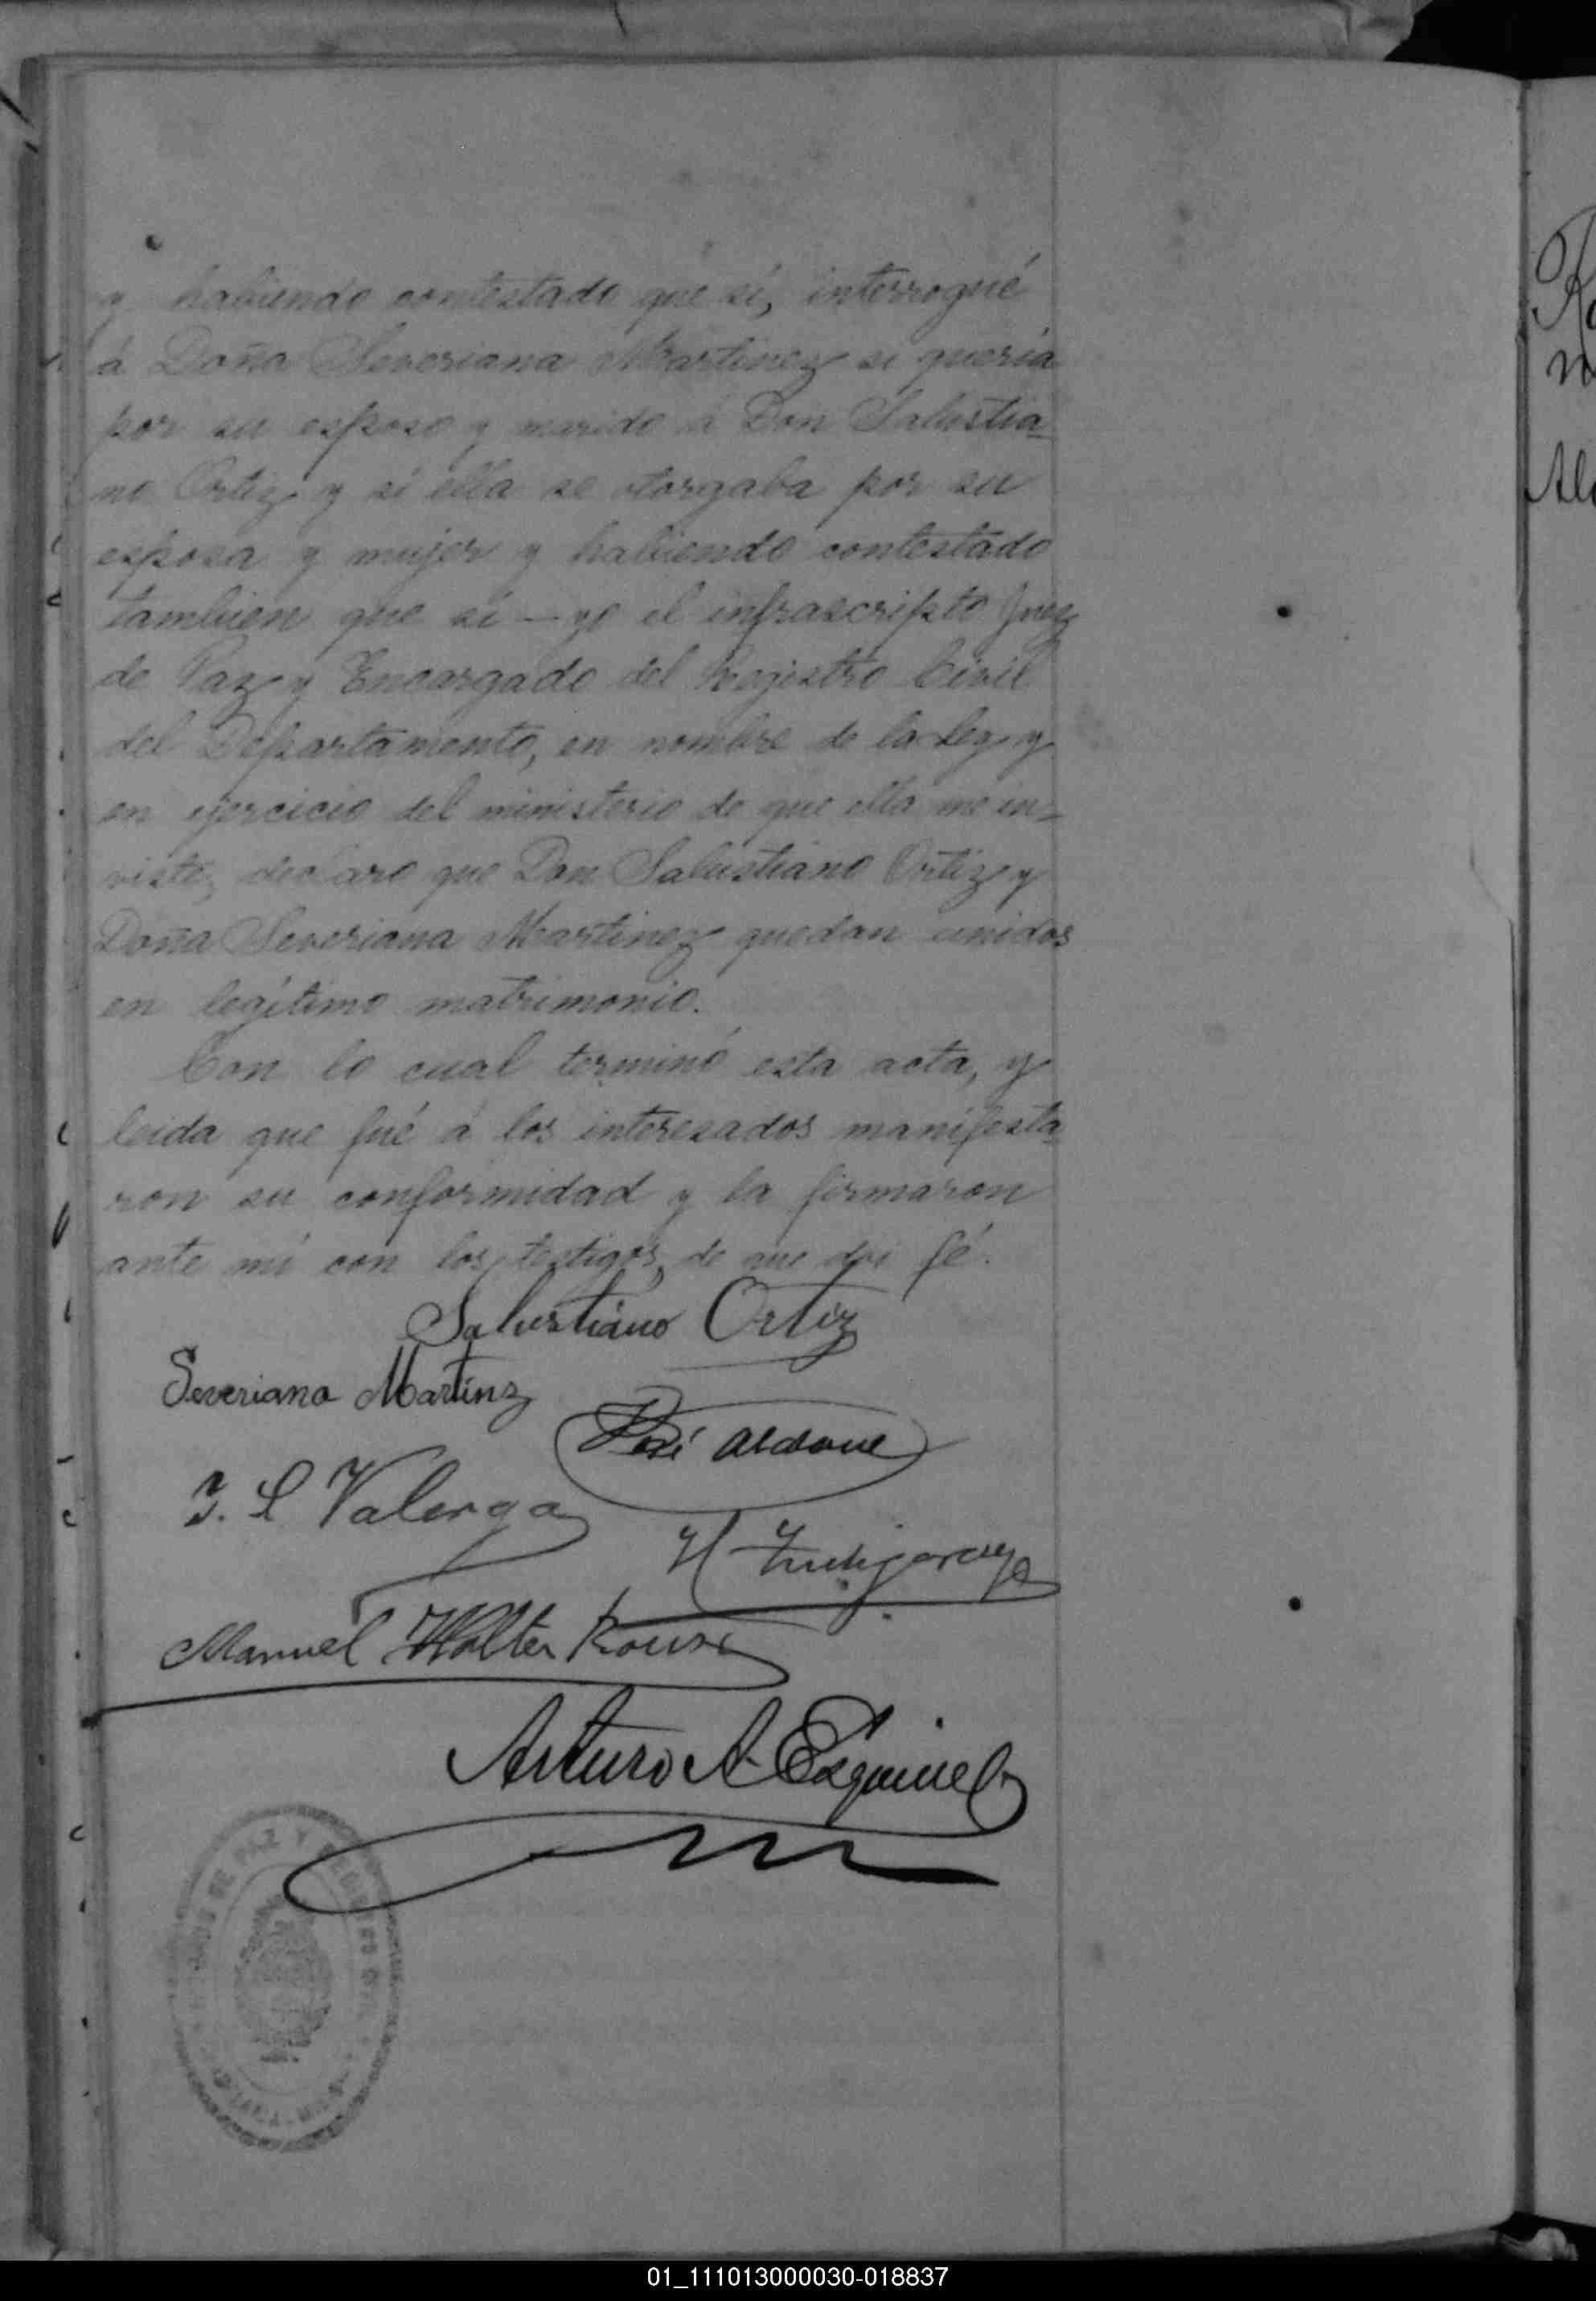 y habiendo contestado que sí, interrogué
á Doña Severiana Martinez si queria
por su esposo y marido á Don Salustia-
no Ortiz y si ella se otorgaba por su
esposa y mujer y habiendo contestado
tambien que si — yo el infrascripto Juez
de Paz y Encargado del Registro Civil
del Departamento, en nombre de la Ley y
en ejercicio del ministerio de que ella me in-
viste, declaro que Don Salustiano Ortiz y
Doña Severiana Martinez quedan unidos
en legítimo matrimonio.
Con lo cual terminó esta acta, y
leida que fué á los interesados manifesta-
ron su conformidad y la firmaron
ante mí con los testigos, de que doi fé.
Salustiano Ortiz
Severiana Martinz
José
J. L Valerga
H
Manuel Walter
Arturo A. Esquivel
DE PAZ Y
01_111013000030-018837